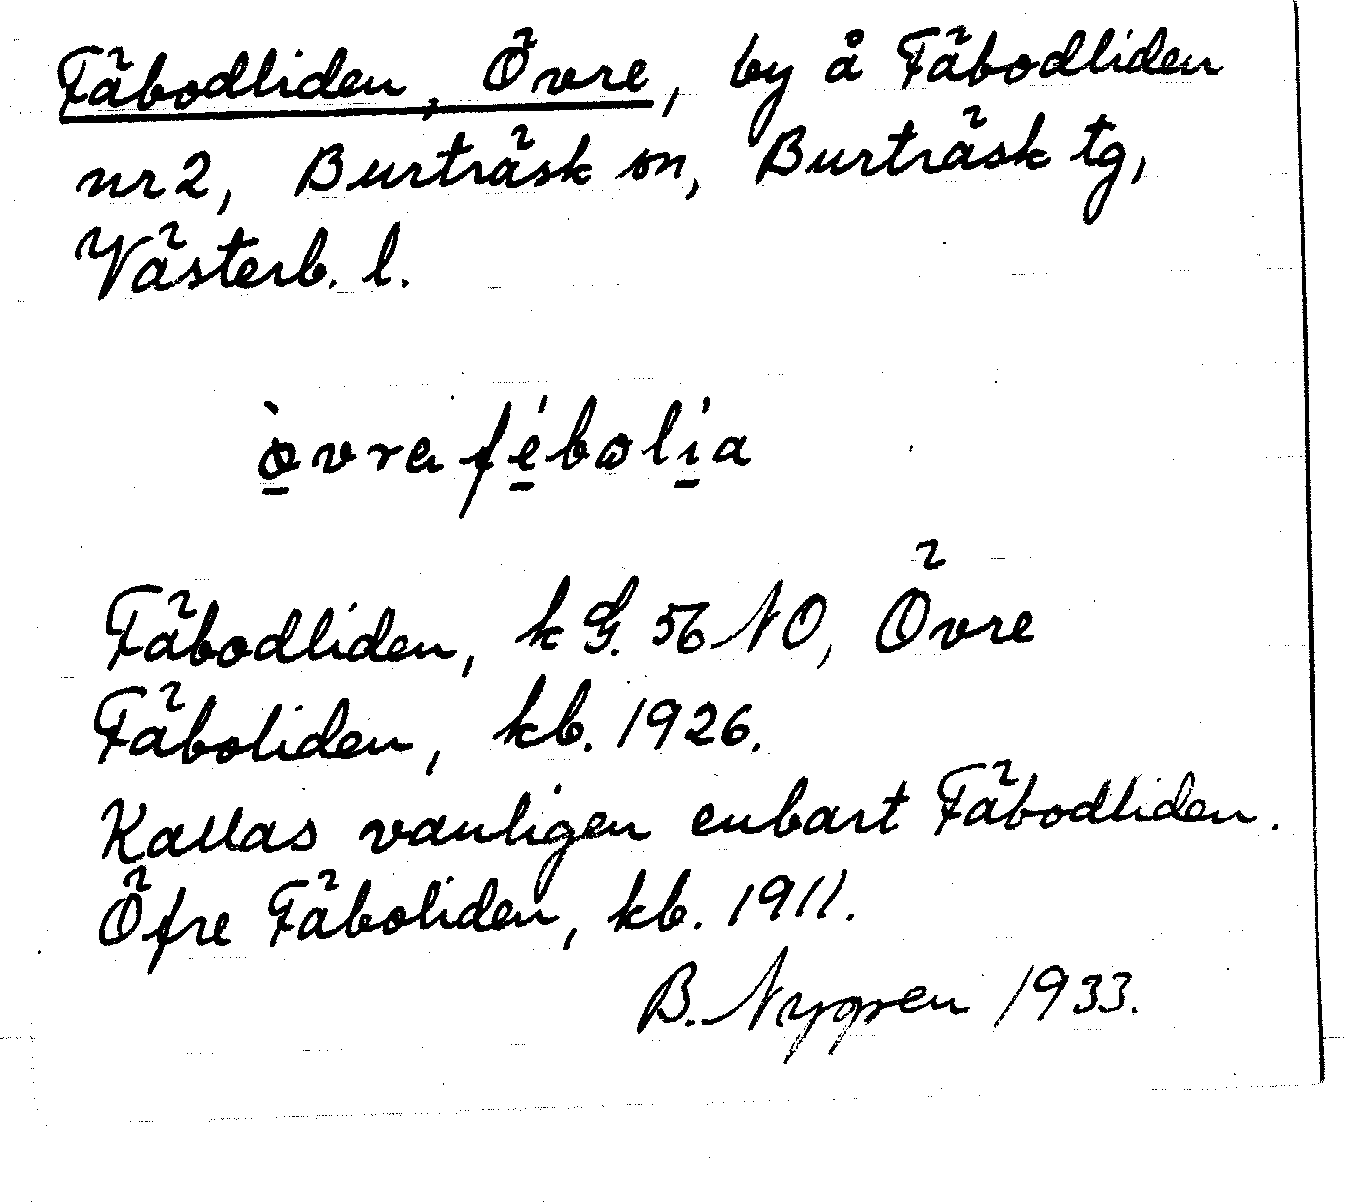 Fäbodliden, Övre, by å Fäbodliden
nr 2, Burträsk sn, Burträsk tg,
Västerb. l.
ø̠̀vra fé̠bωlí̠a
Fäbodliden, k G. 56 NO, Övre
Fäboliden, kb. 1926.
Kallas vanligen enbart Fäbodliden.
Öfre Fäboliden, kb. 1911.
B. Nygren 1933.